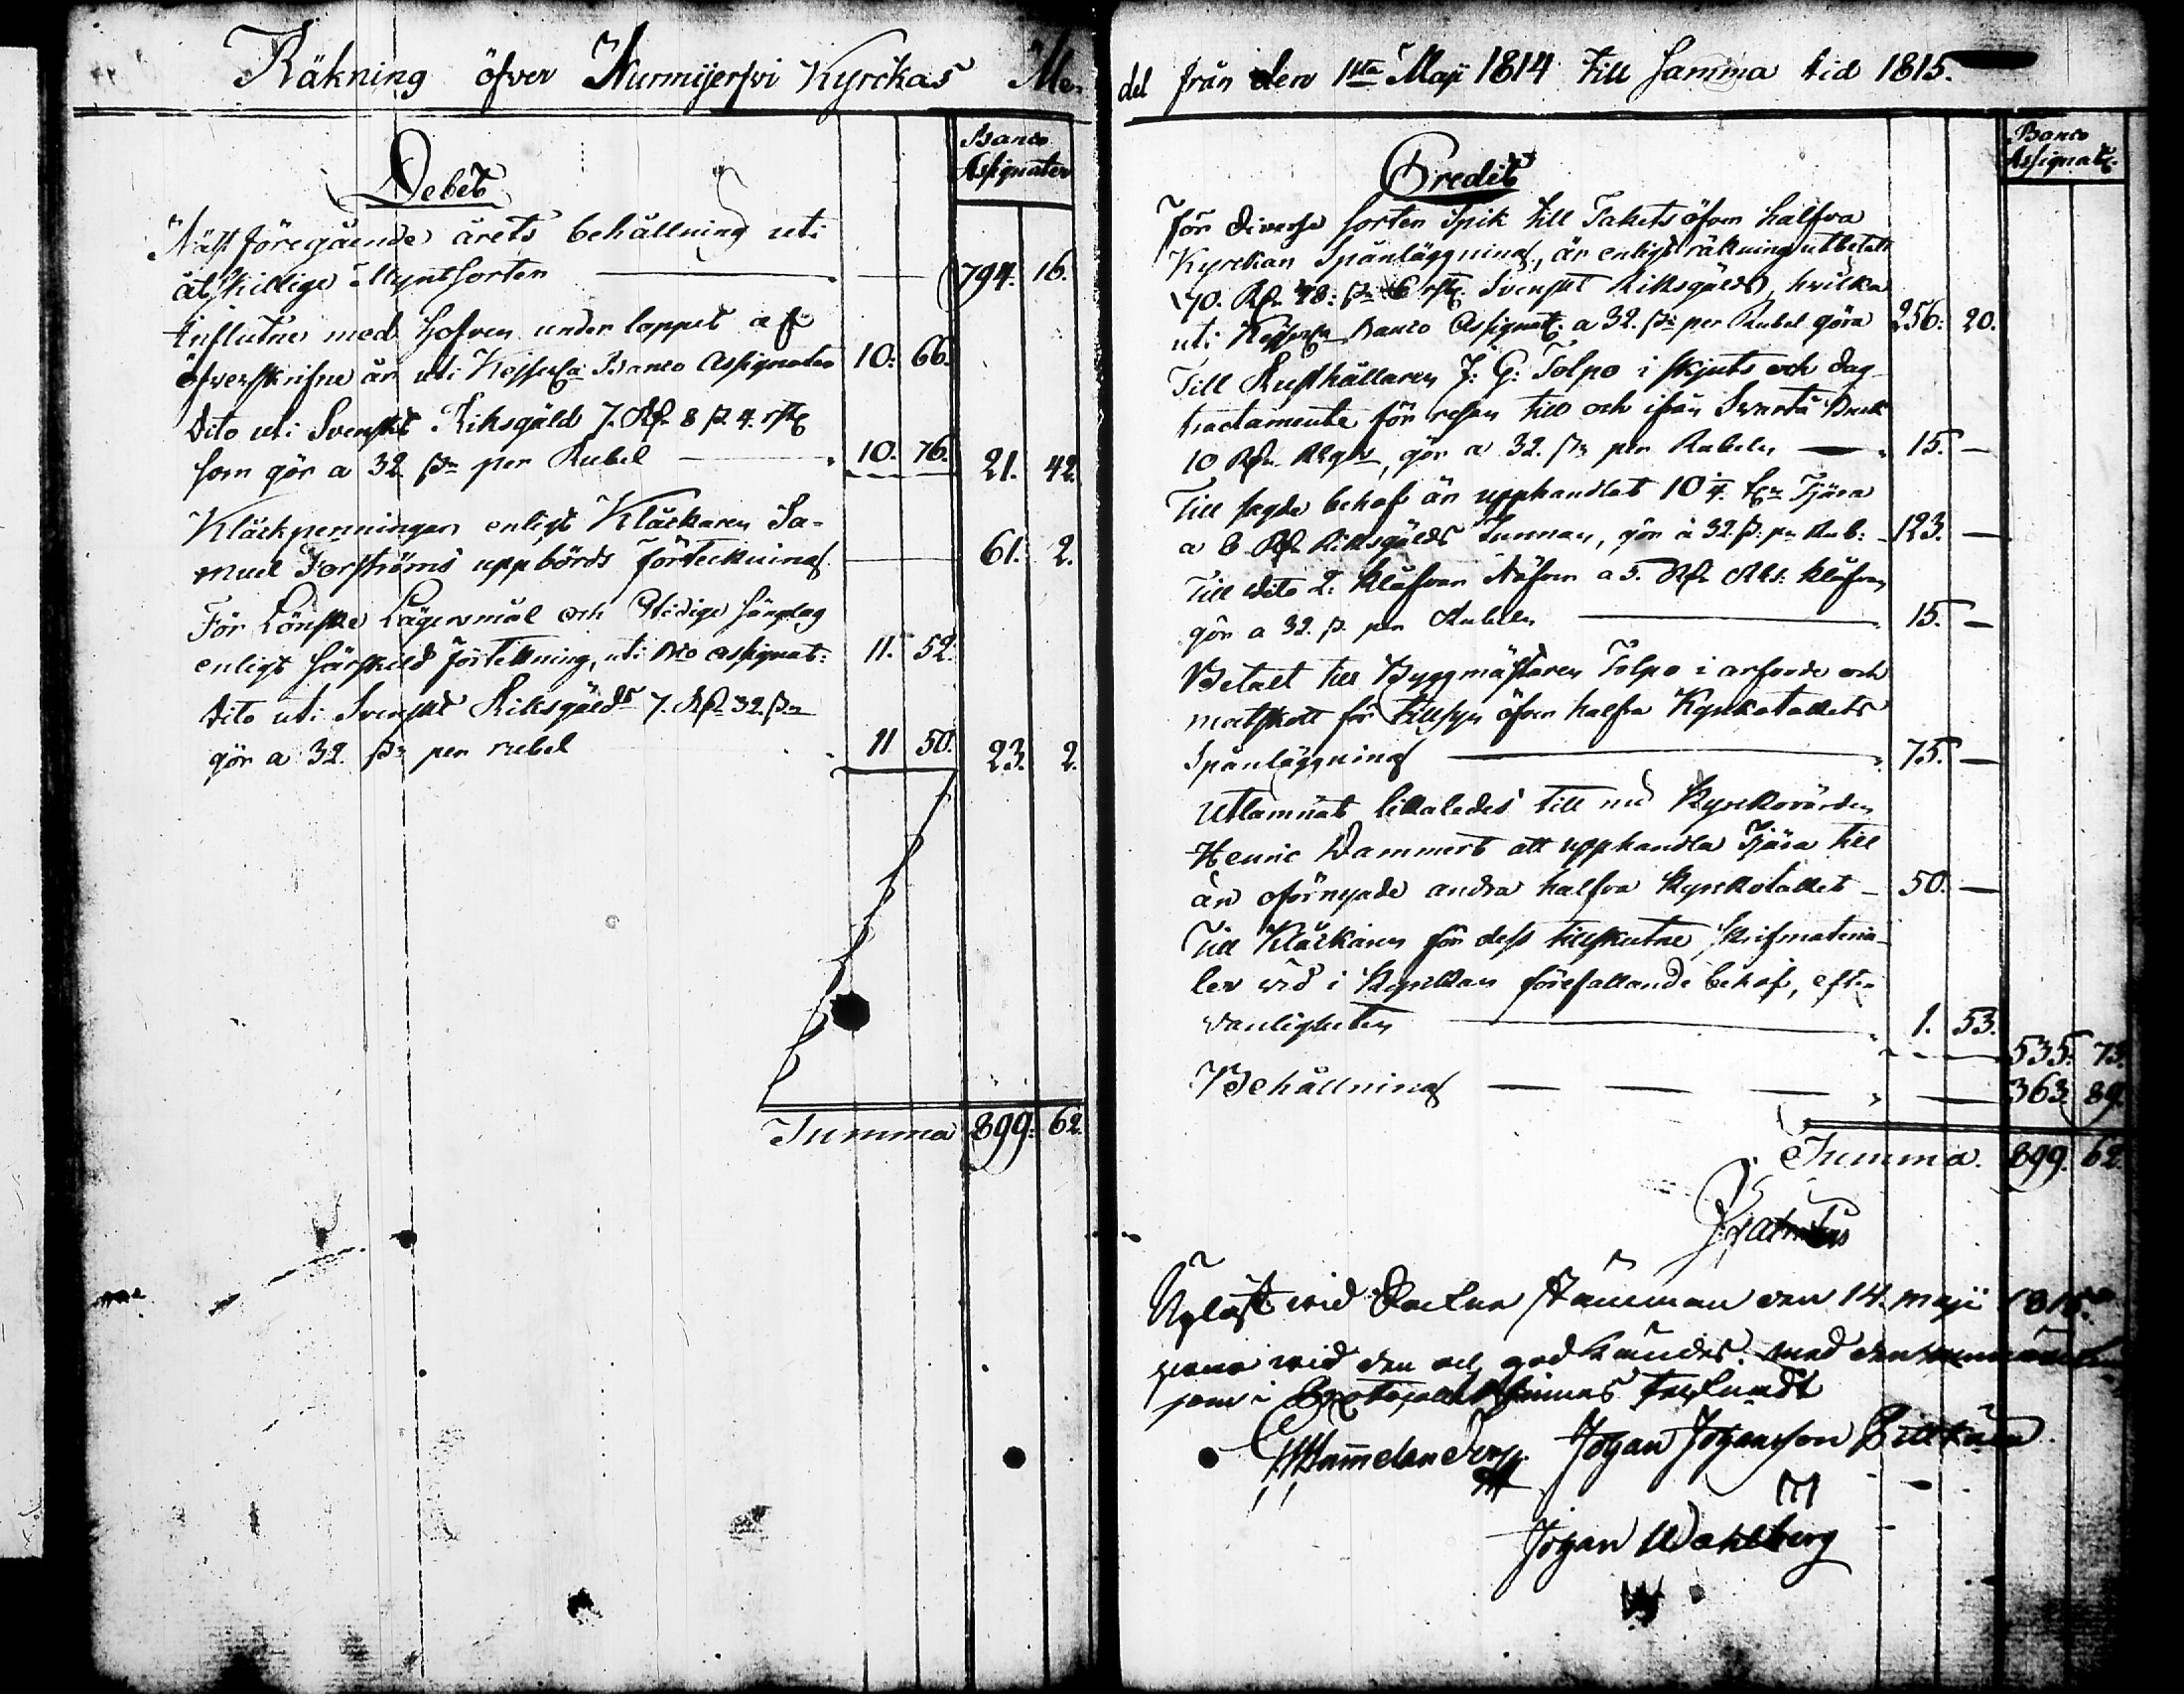 Räkning öfver Nurmijerfvi Kyrckas Me-
Debet
Banco
Assignater
Näst föregående årets behållning uti
åtskillige Myntsorter 794. 16.
Influtne med Hofven under loppet af
öfverskrifne år uti Kejserl:a Banco Assignater 10. 66.
Dito uti Svenskt Riksgäld 7. Rdr 8 ß. 4. rst.
som gör a 32 ß:r per Rubel 10. 76. 21. 42.
Kläckpenningar enligt Klåckaren Sa-
muel Forsströms uppbörds förteckning 61. 2.
För Lönske Lägersmål och Otidige sänglag
enligt särskild förteckning, uti Bco assignat: 11. 52.
Dito uti Svenskt Riksgälds 7. Rdr 32. ß:r
gör a 32. ß:r per rubel 11 50. 23. 2.
Summa 899. 62.
del från den 1sta Maji 1814 till samma tid 1815.
Credit
Banco
Assignat:
För diverse sorter Spik till Takets öfver halfva
Kyrckan Spånläggning, är enligt räkning utbetalt
170. Rdr 38: ß:r 6 rst. Svenskt Riksgälds, hvilka
uti Kejserl:a Banco Assignat: a 32. ß:r per Rubel göra 256. 20.
Till Rusthållaren J: G: Tolpo i skjuts och dag-
tractamente för resan till och ifrån Svartå Bruk
10 Rdr Rgds, gör a 32. ß:r per Rubeln 15. —
Till sagde behof är upphandlat 10 1/4 t:r Tjära
a 8 Rdr Riksgälds Tunnan, gör à 32 ß: pr Rub: 123. —
Till dito 2. Klåfvar Näfver a 5. Rdr Rks: klåfven
gör a 32. ß. per Rubeln 15. —
Betalt till Byggmästaren Tolpo i arfvode och
matskott för tillsyn öfver halfva Kyrkotakets
Spånläggning 75. —
Utlämnat likaledes till nu Kyrckovärden
Henric Dammert att upphandla Tjära till
än oförnyade andra halfva Kyrckotaket 50. —
Till Klåckaren för dess tillskutne skrifmateria-
ler vid i Kyrckan förefallande behof, efter
vanligheten 1. 53.
535. 73.
Behållning 363. 89.
Summa. 899. 62.
Upläst wid Sockne stämman den 14. maji 1815.
som i finnes
Johan Johansson
Johan Wahlberg